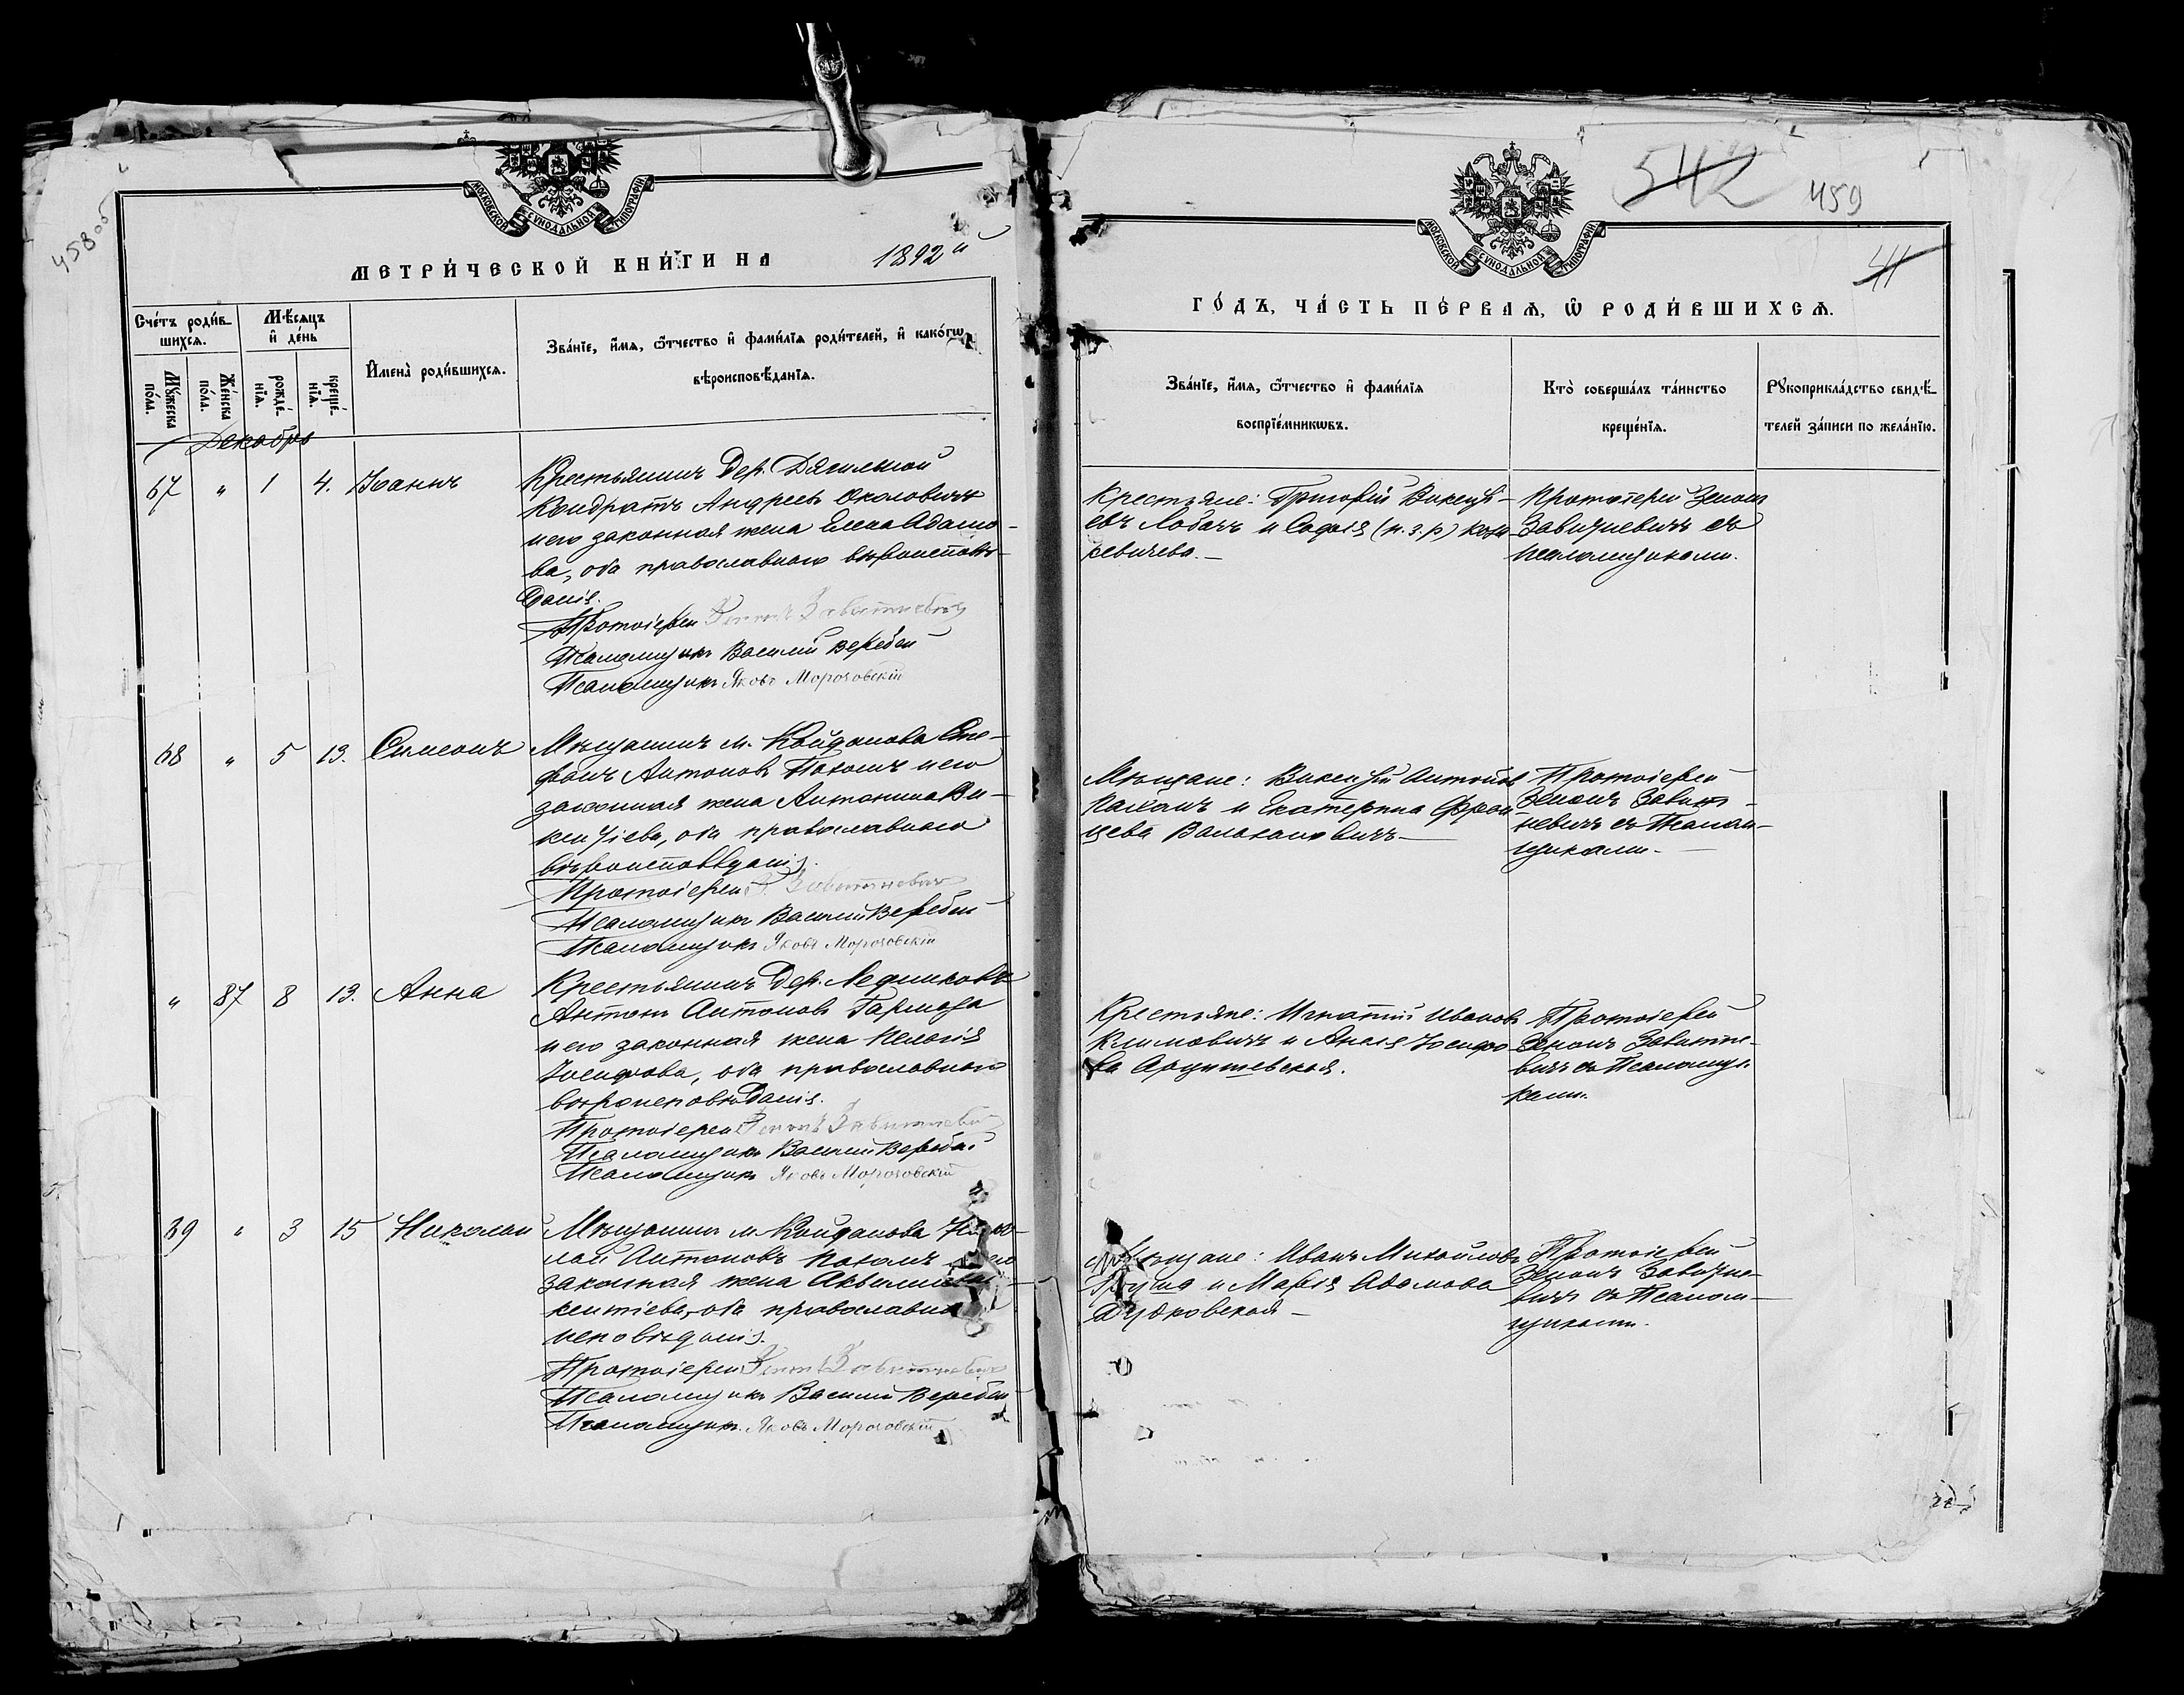 458 об
МОСКОВСКОЙ СѴНОДАЛЬНОЙ ТИПОГРАФІИ
МЕТРИ́ЧЕСКОЙ КНИ́ГИ НА 1892й
Сче́тъ роди́в-
шихсѧ.
Мѣ́сѧцъ
и҆ де́нь
И҆мена̀ роди́вшихсѧ.
Зва́нїе, и҆́мѧ, ѻ҆́тчество и҆ фами́лїѧ роди́телей, и҆ како́гѡ
вѣроисповѣ́данїѧ.
Мꙋ́жеска
по́ла.
Же́нска
по́ла.
рожде́-
нїѧ.
креще́-
нїѧ.
Декабрь
67 " 1 4. Іоаннъ
Крестьянинъ Дер. Дягильной
Кондратъ Андреевъ Околовичъ
и его законная жена Елена Адамо-
ва, оба православнаго вѣроисповѣ-
данія.
Протоіерей Зенонъ Завитневичъ
Псаломщикъ Василій Веребей
Псаломщикъ Яковъ Морозовскій
68 " 5 13. Симеонъ
Мѣщанинъ м. Койданова Сте-
фанъ Антоновъ Пахолъ и его
законная жена Антонина Ви-
кентіева, оба православнаго
вѣроисповѣданія.
Протоіерей З. Завитневичъ
Псаломщикъ Василій Веребей
Псаломщикъ Яковъ Морозовскій
" 87 8 13. Анна
Крестьянинъ Дер.
Антонъ Антоновъ
и его законная жена Пелагія
Іосифова, оба православнаго
вѣроисповѣданія.
Протоіерей Зенонъ Завитневичъ
Псаломщикъ Василій Веребей
Псаломщикъ Яковъ Морозовскій
69 " 3 15 Николай
Мѣщанинъ м. Койданова Нико-
лай Антоновъ Пахолъ и его
законная жена
кентіева, оба православна
исповѣданія.
Протоіерей Зенонъ Завитневичъ
Псаломщикъ Василій Веребей
Псаломщикъ Яковъ Морозовскій
МОСКОВСКОЙ СѴНОДАЛЬНОЙ ТИПОГРАФІИ
542 459
41
ГО́ДЪ, ЧА́СТЬ ПЕ́РВАѦ, Ѽ РОДИ́ВШИХСѦ.
Зва́нїе, и҆́мѧ, ѻ҆́тчество и҆ фами́лїѧ
воспрїе́мникѡвъ.
Кто̀ соверша́лъ та́инство
креще́нїѧ.
Рꙋкоприкла́дство свидѣ́-
телей за́писи по жела́нїю.
Крестьяне: Григорій Викенті-
евъ Лобачъ и Софія (н.з.р)
кевичева.-
Протоіерей Зенонъ
Завитневичъ съ
псаломщиками.
Мѣщане: Викентій Антоновъ
Пахолъ и Екатерина Фран-
цева
Протоіерей
Зенонъ Завит-
невичъ съ Псалом-
щиками.-
Крестьяне: Игнатій Ивановъ
Климовичъ и Анна Іосифо-
ва Арцишевская.
Протоіерей
Зенонъ Завитне-
вичъ съ Псаломщи-
ками.
Мѣщане: Иванъ Михайловъ
и Марія Адамова
Дудковская-
Протоіерей
Зенонъ Завитне-
вичъ съ Псалом-
щиками.